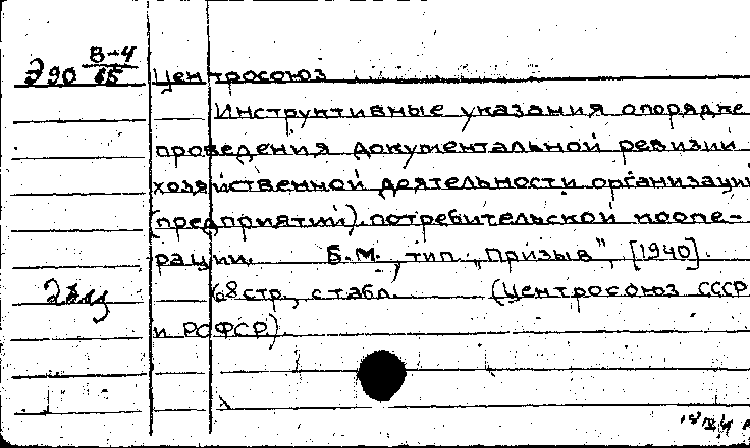 Э90 В-4/65 Центросоюз
Инструктивные указания опорядке
проведения документальной ревизии
хозяйственной деятельности организаци
(предприятий) потребительской коопе-
рации. Б.м., тип. „Призыв", [1940].
2 экз 68 стр., с табл. (Центросоюз СССР
и РСФСР).